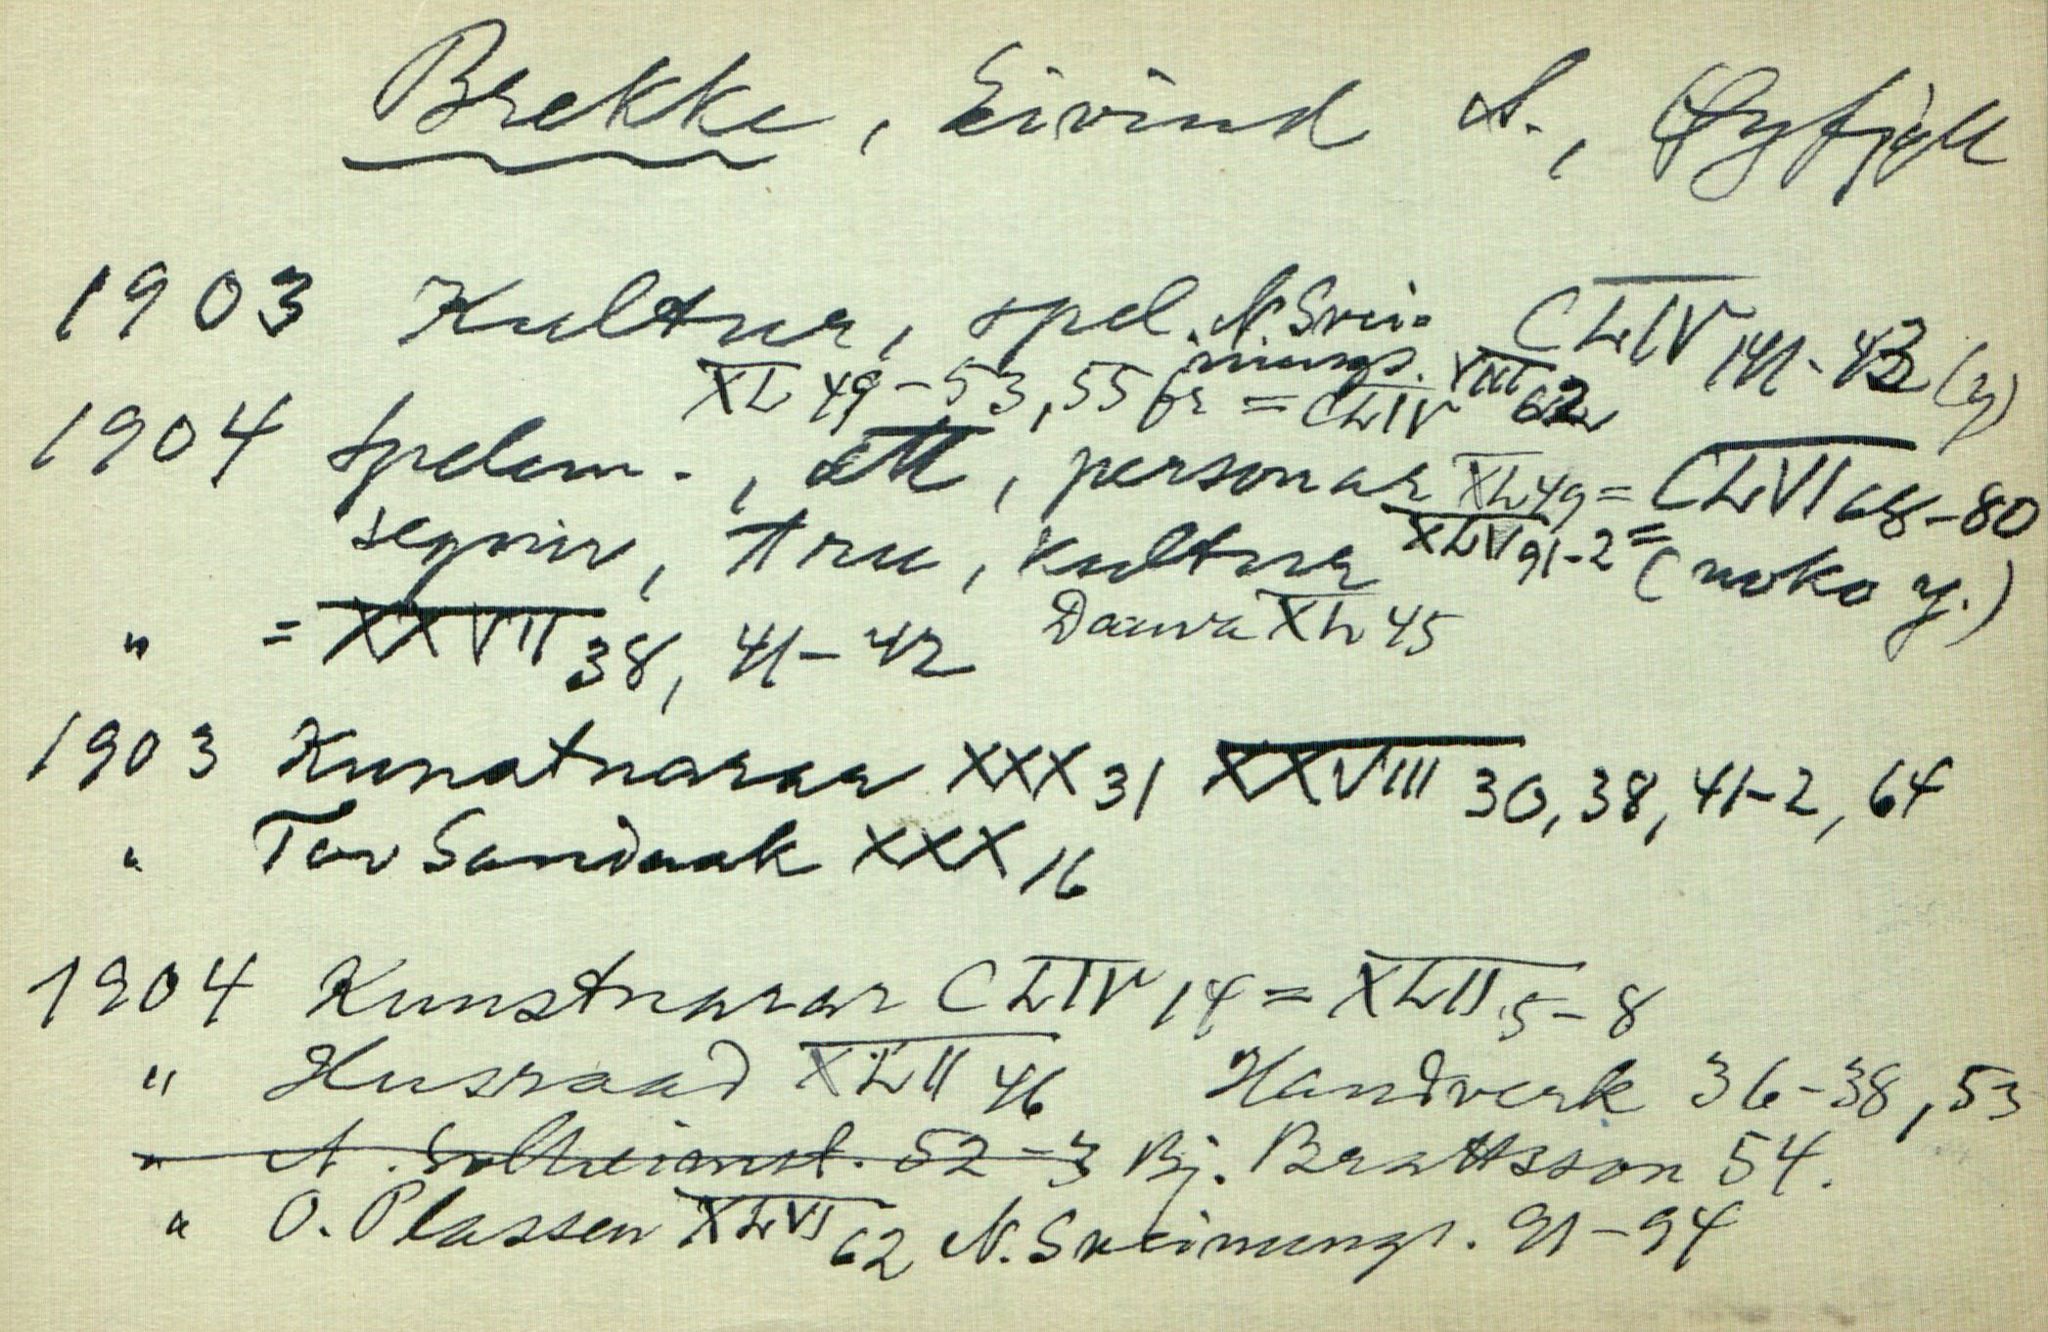 Brekke, Eivind S., Øyfjell
1903 Kultur, spel. N. Svei- CLIV 141-43 (y)
nungs. VIII 62
XL 49-53, 55 fr = CLIV
1904 Spelem., ætt, personar XL 49 = CLVI 68-80
segnir, tru, kultur XLV 91-2 = (noko y.)
" = XXVII 38, 41-42 Daava XL 45
1903 Kunstnarar XXX 31 XXVIII 30, 38, 41-2, 64
" Tov Sandaak XXX 16
1904 Kunstnarar CLIV 14 = XLII 5-8
" Husraad XLII 46 Handverk 36-38, 53
" A. Solheimsl. 52-3 Bj. Brattsson 54.
" O. Plassen XLVI 62 N. Sveinungs. 91-94